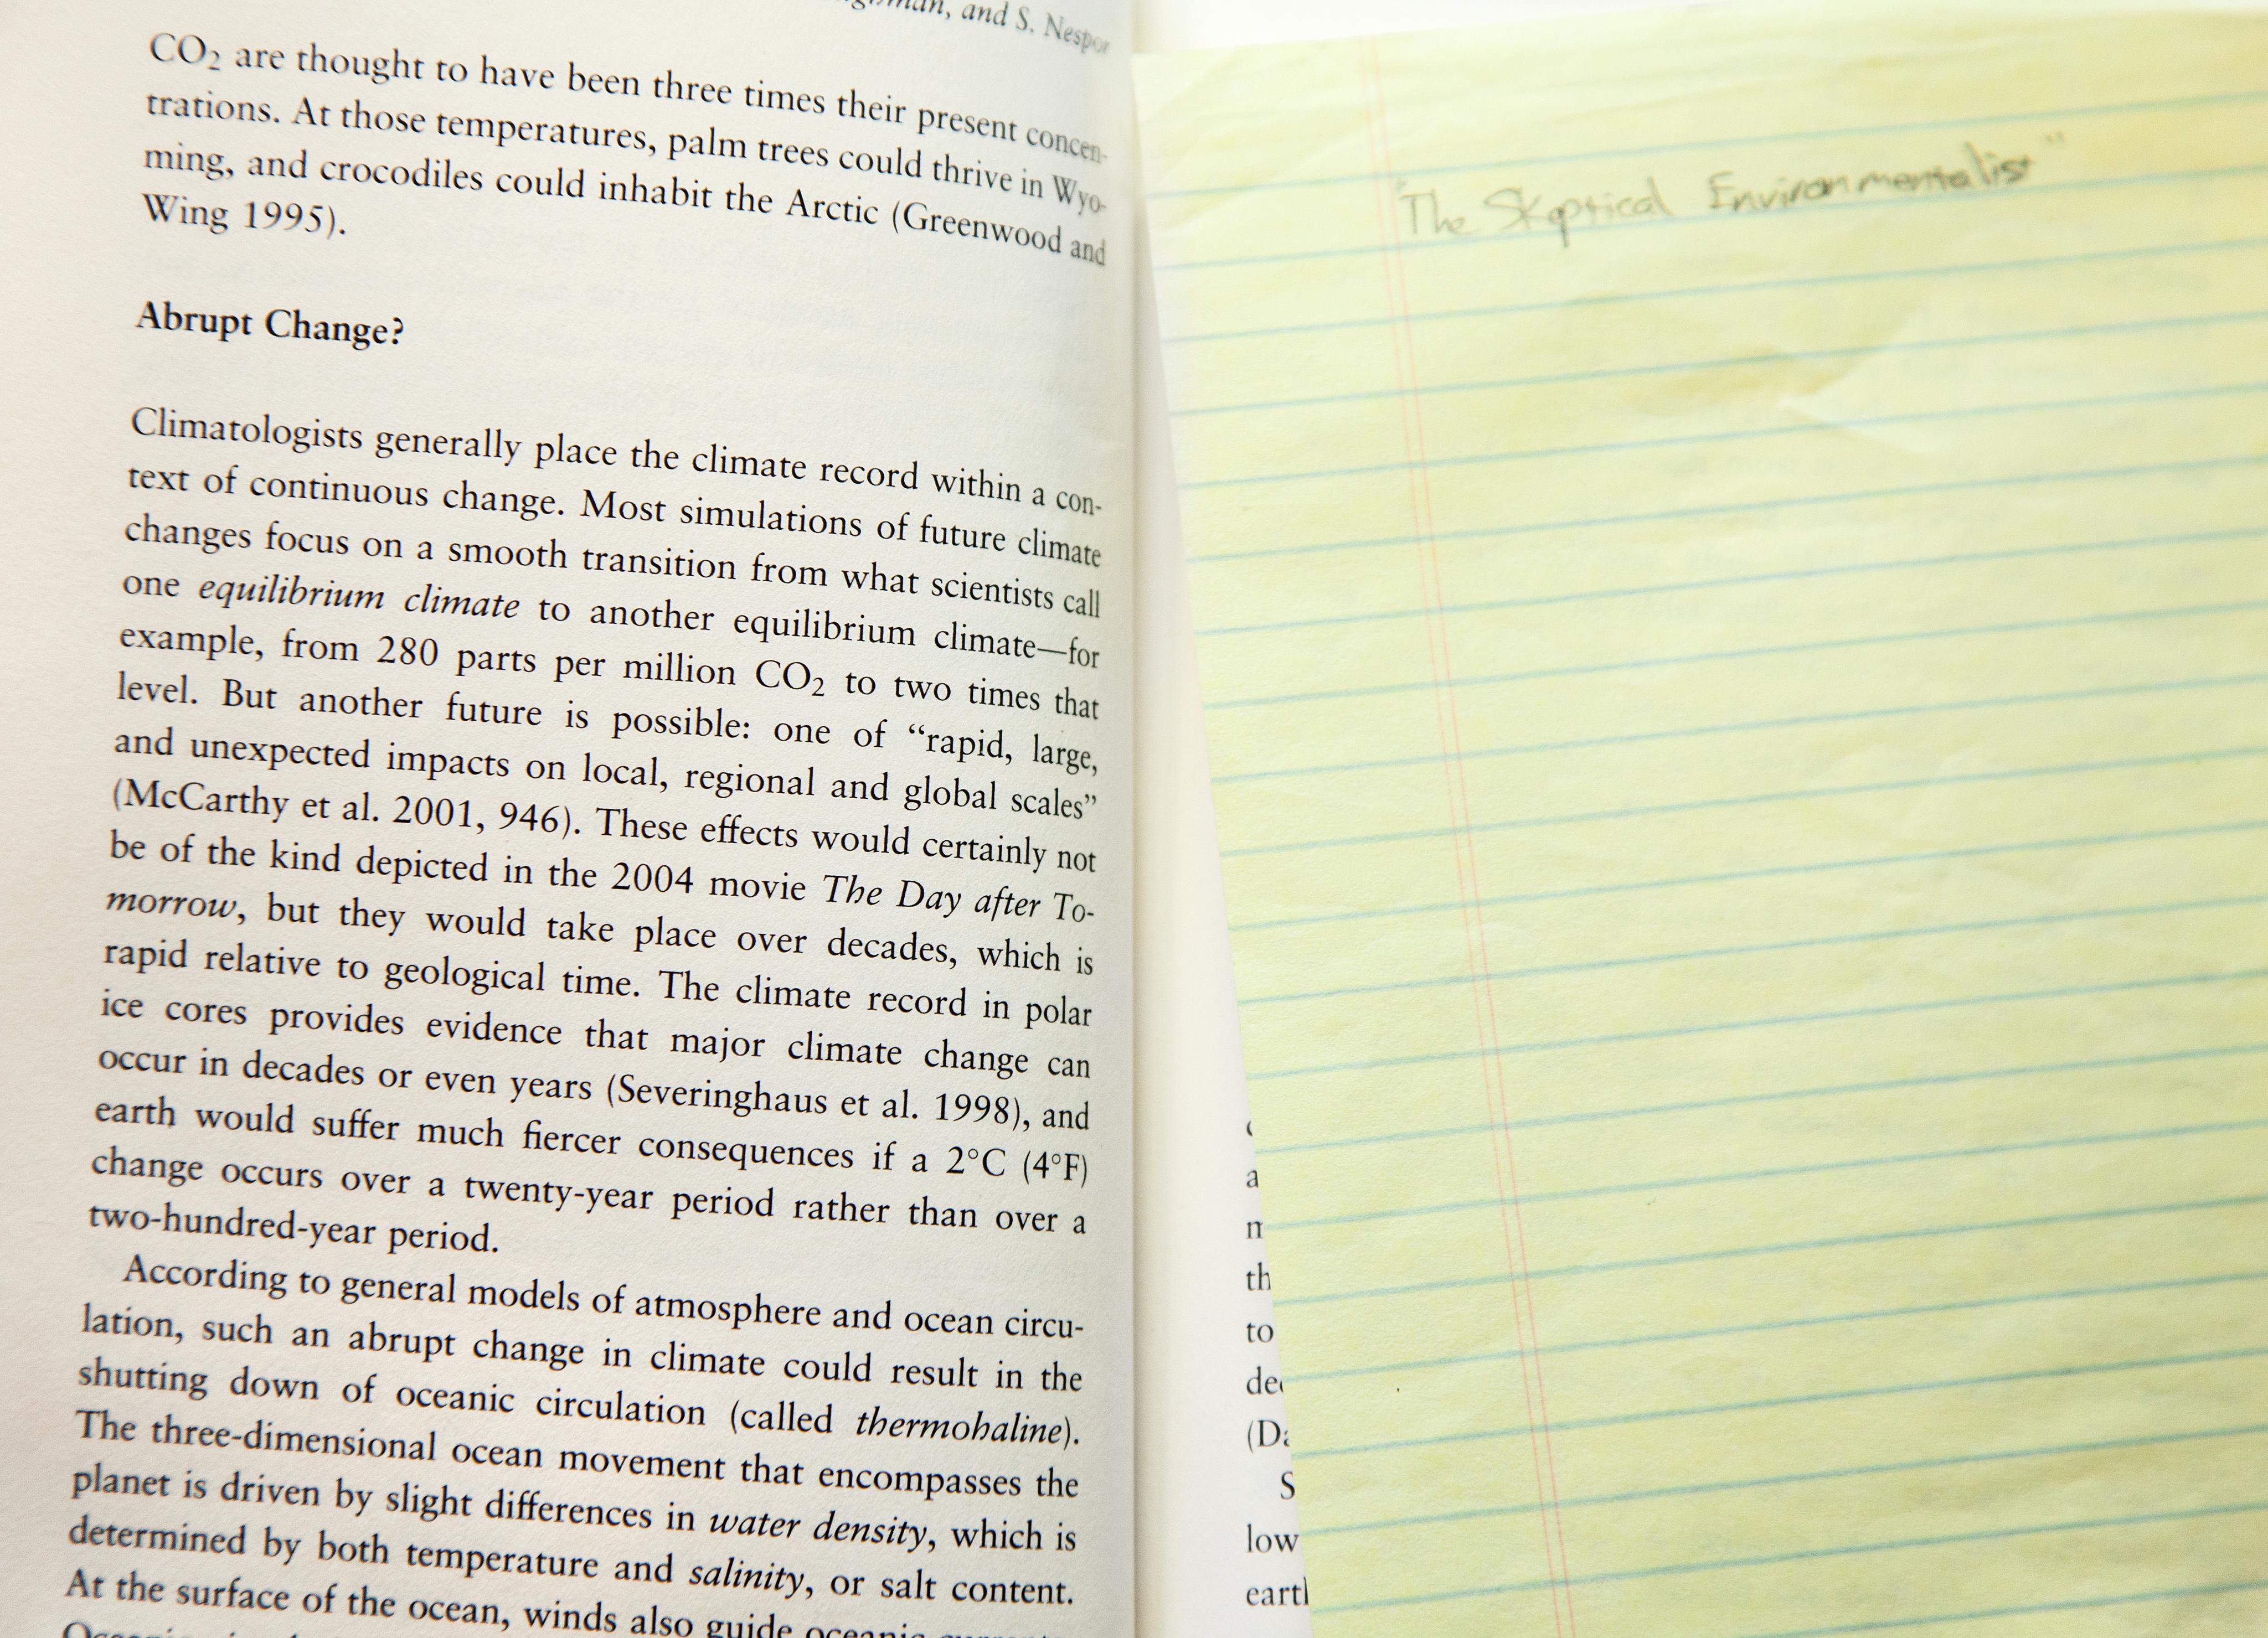 man, and S. Nespor
CO₂ are thought to have been three times their present concen-
trations. At those temperatures, palm trees could thrive in Wyo-
ming, and crocodiles could inhabit the Arctic (Greenwood and
Wing 1995).
Abrupt Change?
Climatologists generally place the climate record within a con-
text of continuous change. Most simulations of future climate
changes focus on a smooth transition from what scientists call
one equilibrium climate to another equilibrium climate—for
example, from 280 parts per million CO₂ to two times that
level. But another future is possible: one of “rapid, large,
and unexpected impacts on local, regional and global scales”
(McCarthy et al. 2001, 946). These effects would certainly not
be of the kind depicted in the 2004 movie The Day after To-
morrow, but they would take place over decades, which is
rapid relative to geological time. The climate record in polar
ice cores provides evidence that major climate change can
occur in decades or even years (Severinghaus et al. 1998), and
earth would suffer much fiercer consequences if a 2°C (4°F)
change occurs over a twenty-year period rather than over a
two-hundred-year period.
According to general models of atmosphere and ocean circu-
lation, such an abrupt change in climate could result in the
shutting down of oceanic circulation (called thermohaline).
The three-dimensional ocean movement that encompasses the
planet is driven by slight differences in water density, which is
determined by both temperature and salinity, or salt content.
At the surface of the ocean, winds also guide oceanic
"The Skeptical Environmentalist"
a
th
to
(Da
S
low
eart